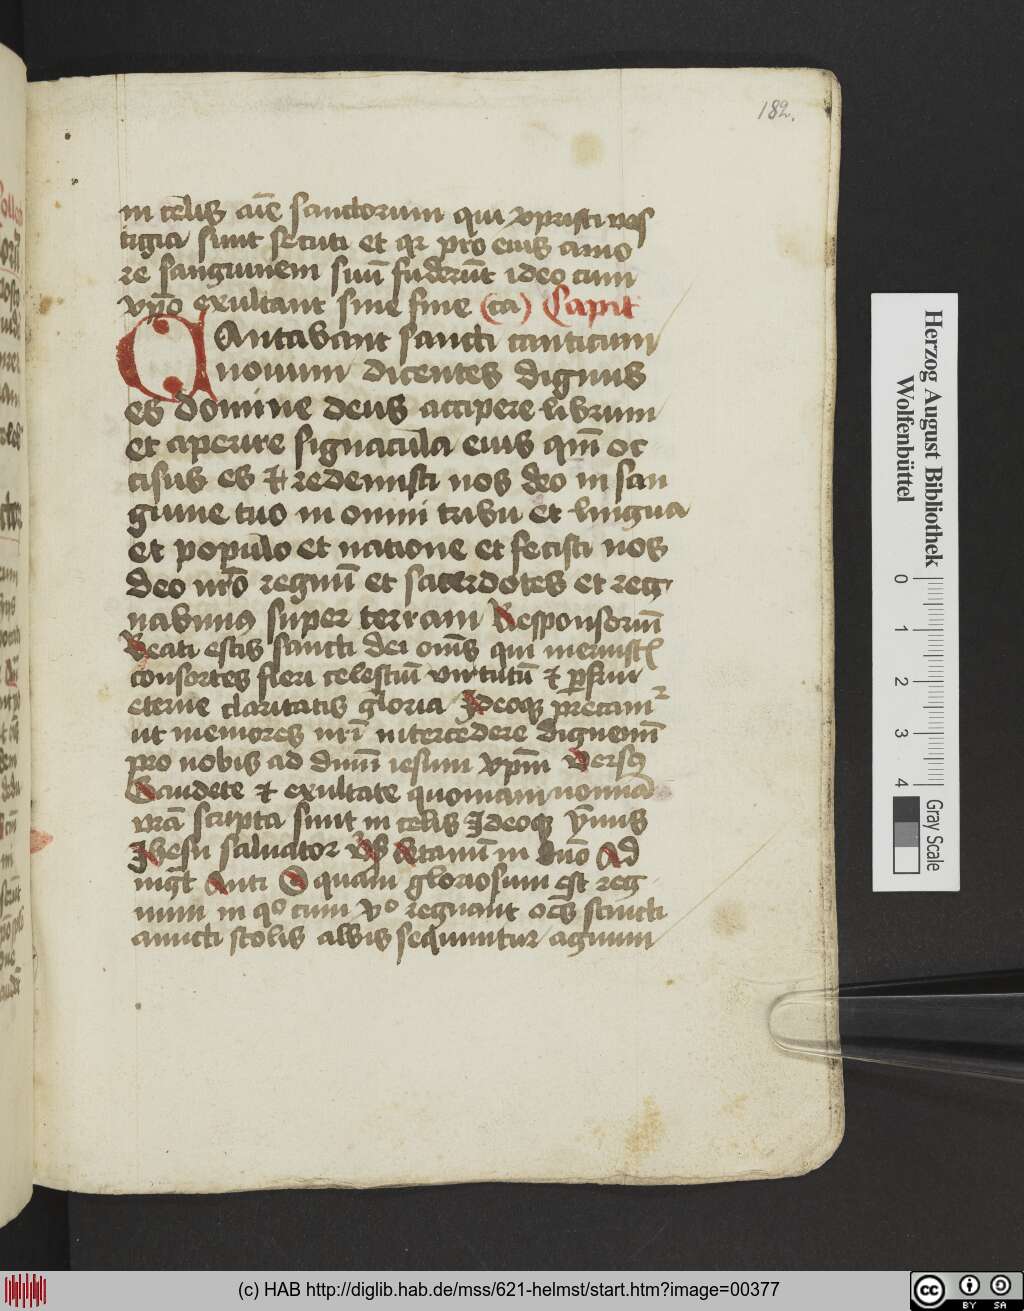 182.
in celis aīe sanctorum qui xpristi ves
tigia sunt secuti et qr pro eius amo
re sanguinem suū fuderūt ideo cum
xpo exultant sine fine (ca) Capit
CAntabant sancti canticum
novum dicentes dignus
es domine deus accipere librum
et aperire signacula eius qm̄ oc
cisus es et redemisti nos deo in san
guine tuo in omni tribu et lingua
et populo et natione et fecisti nos
deo nr̄o regnū et sacerdotes et reg
nabimus super terram Responsoriū
Beati estis sancti dei om̄s qui meruist
consortes fieri celestiū virtutū et perfrui
eterne claritatis gloria Ideoq precam
ut memores nr̄i intercedere dignemī
pro nobis ad dn̄m iesum xpm̄ versq
Gaudete et exultate quoniam nomīa
vr̄a scripta sunt in celis Ideoq ymus
Ihesu salvator Letamī in dn̄o Ad
mgt Anti O quam gloriosum est reg
num in qo cum xo regnant oēs sancti
amicti stolis albis sequuntur agnum
Herzog August Bibliothek
Wolfenbüttel
0 1 2 3 4
Gray Scale
(c) HAB http://diglib.hab.de/mss/621-helmst/start.htm?image=00377
cc BY SA